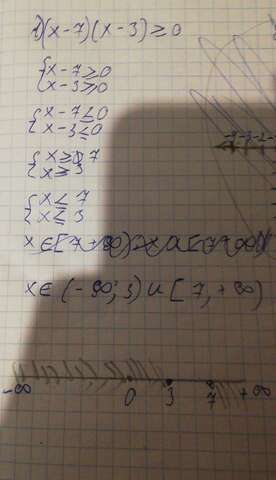 1) (x-7)(x-3)≥0
{x-7≥0
{x-3≥0
{x-7≤0
{x-3≤0
{x≥7
{x≥3
{x≤7
{x≤3
x∈(-∞; 3) ∪ [7, +∞)
-∞ 0 3 7 +∞